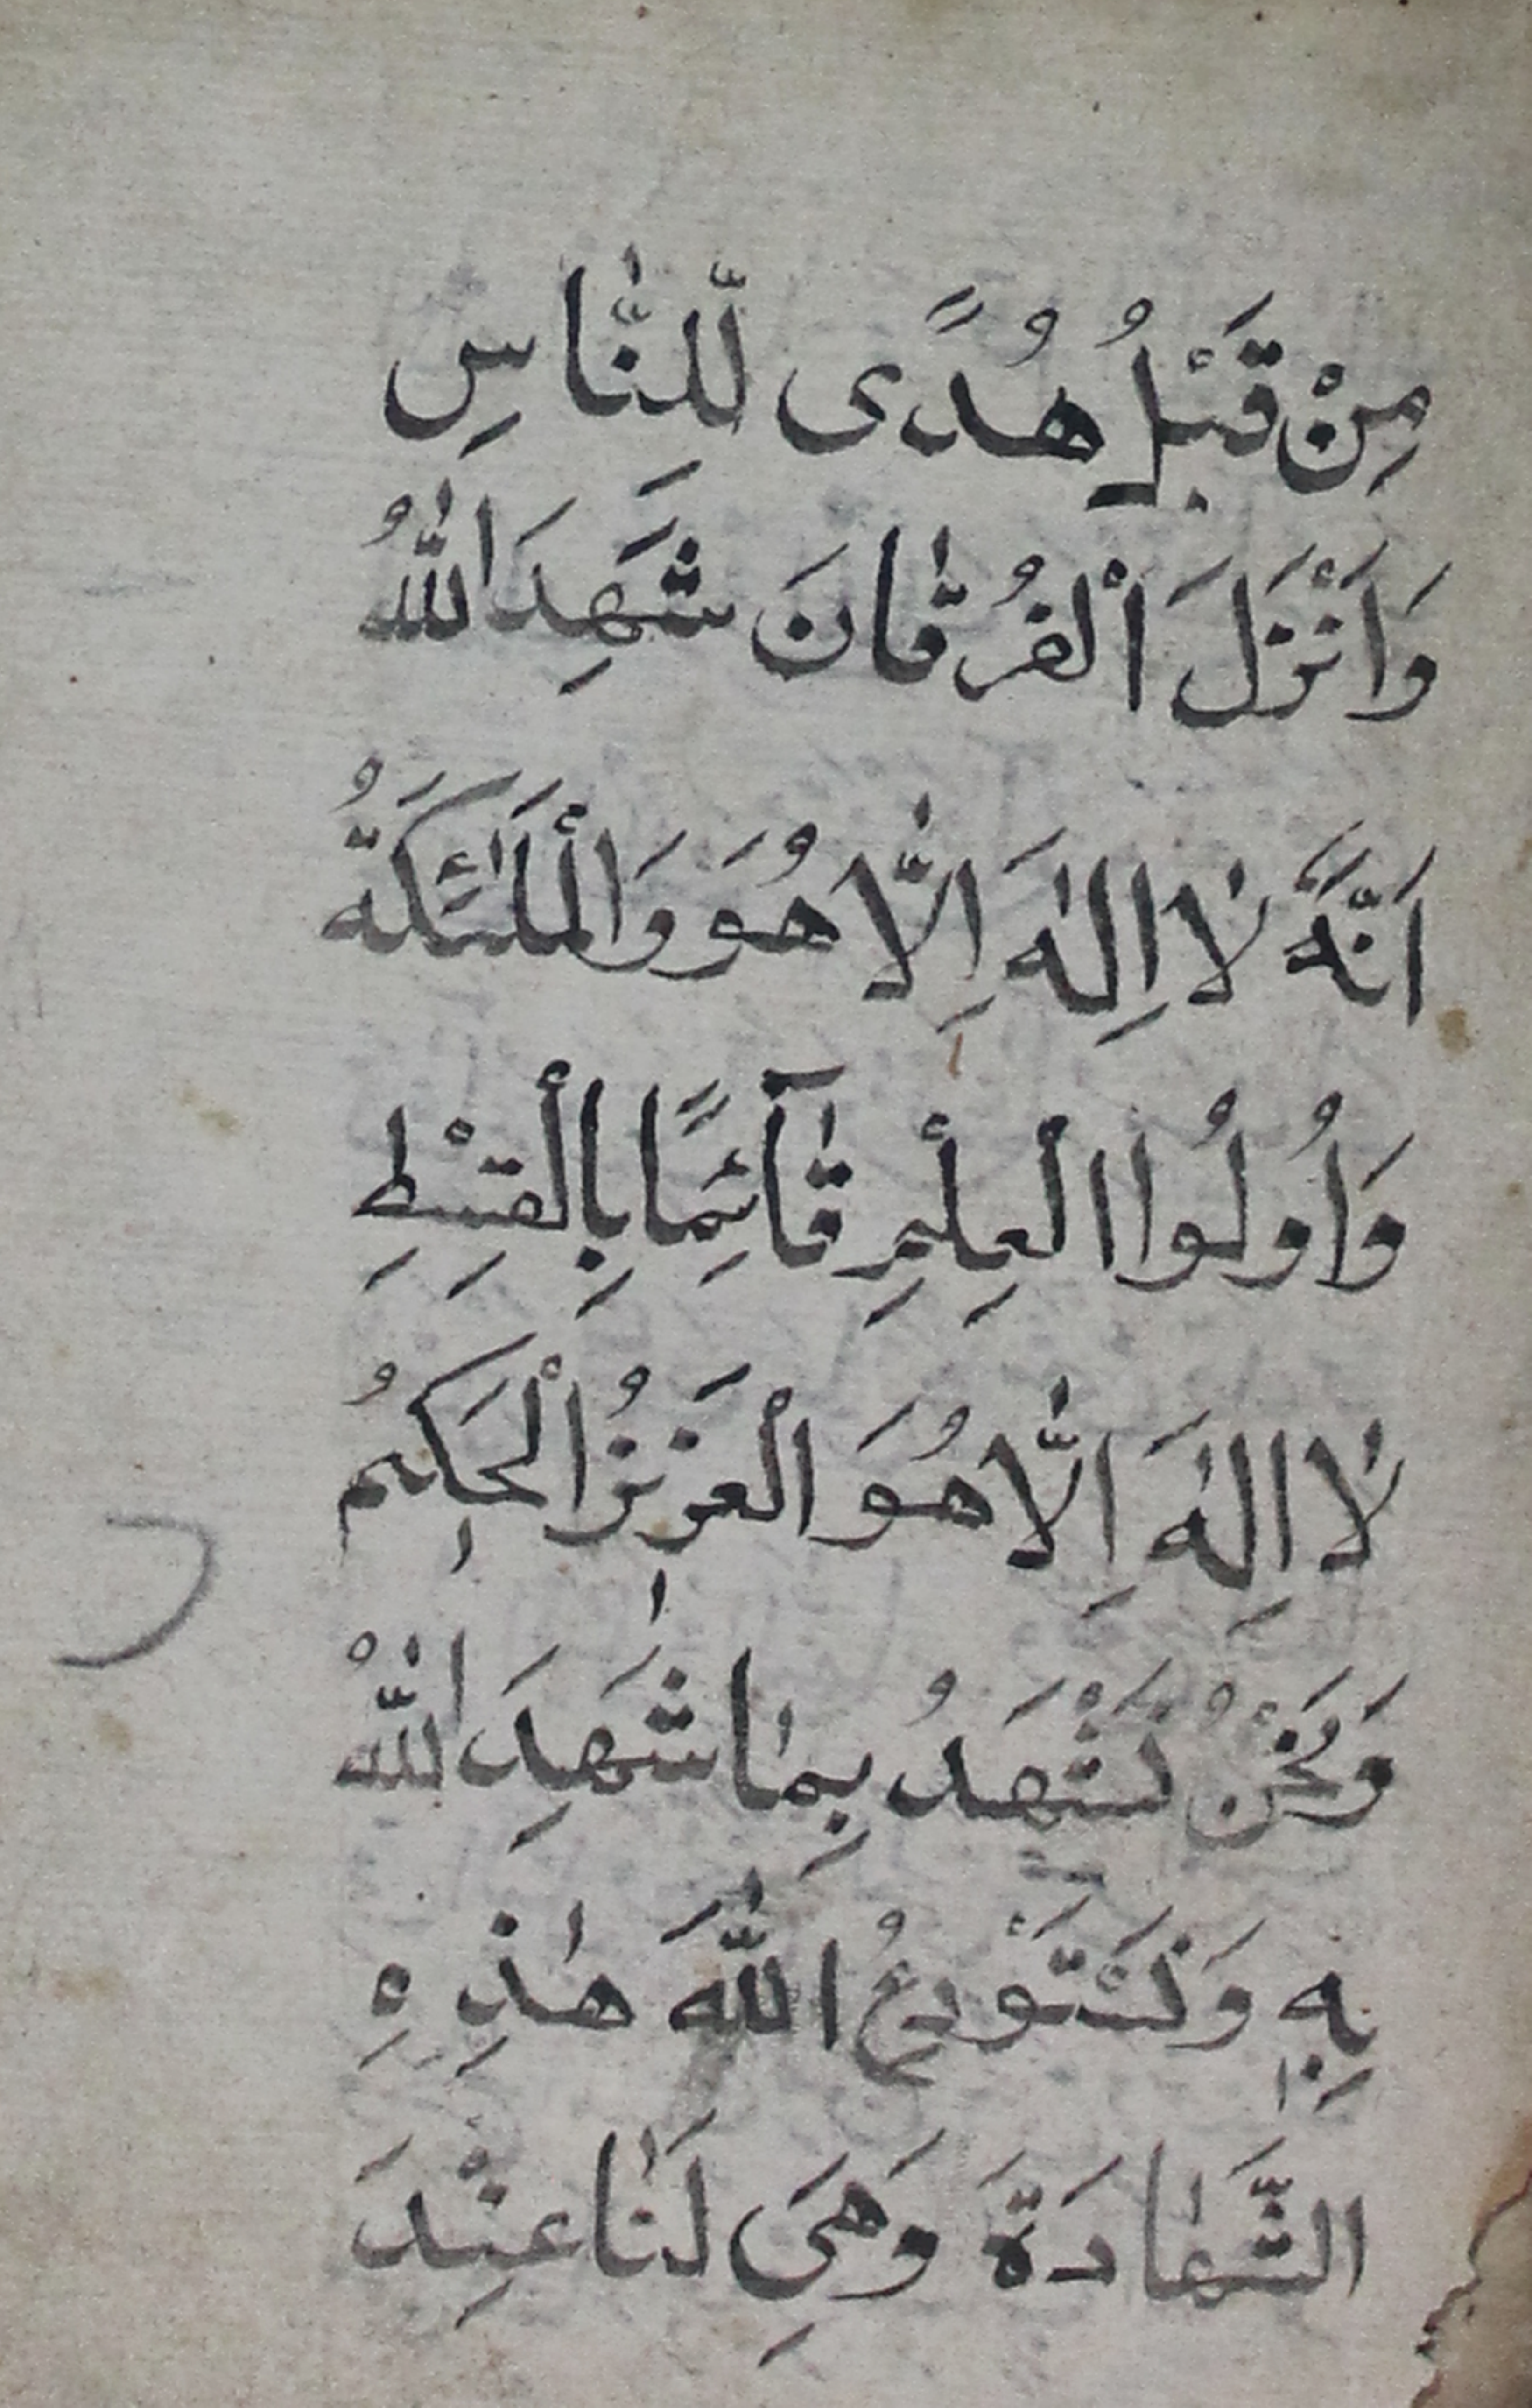 مِنْ قَبْلُ هُدًى لِّلنَّاسِ
وَاَنْزَلَ الْفُرْقَانَ شَهِدَ اللّٰهُ
اَنَّهُ لَا اِلٰهَ اِلَّا هُوَ وَالْمَلٰئِكَةُ
وَاُولُوا الْعِلْمِ قَآئِمًا بِالْقِسْطِ
لَا اِلٰهَ اِلَّا هُوَ الْعَزِيزُ الْحَكِيمُ
وَنَحْنُ نَشْهَدُ بِمَا شَهِدَ اللّٰهُ
بِهِ وَنَسْتَوْدِعُ اللّٰهَ هٰذِهِ
الشَّهَادَةَ وَهِيَ لَنَا عِنْدَ